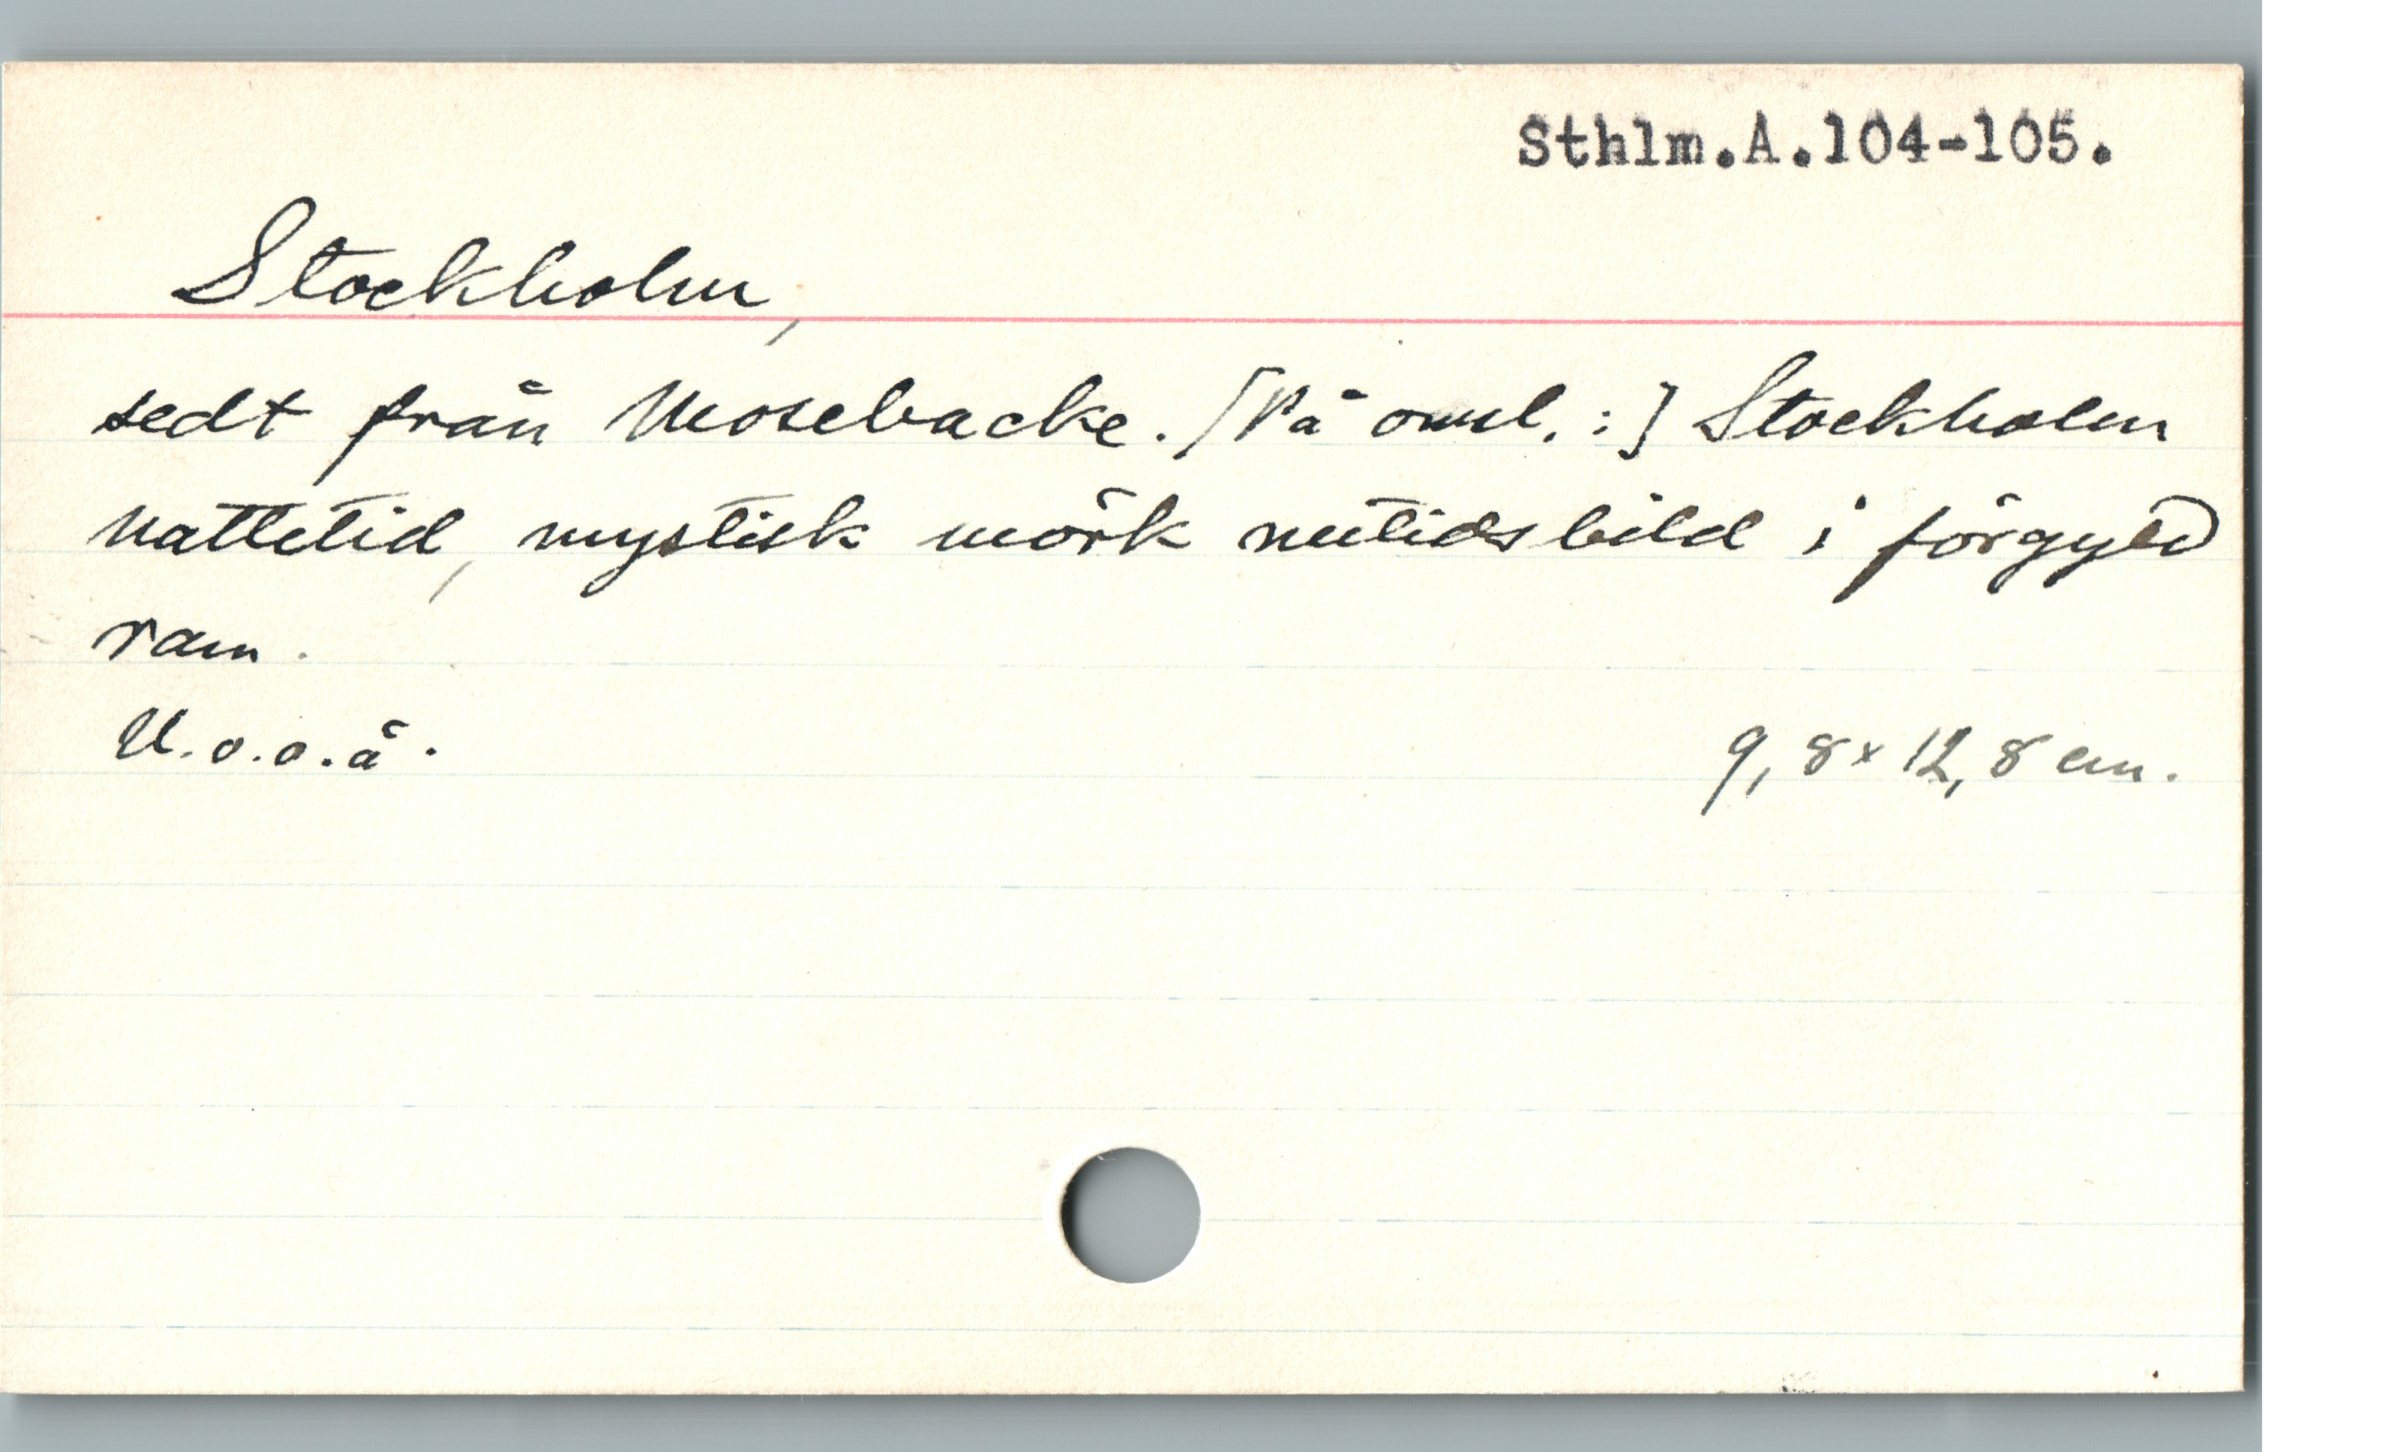 Sthlm.A.104-105.
Stockholm,
sedt från Mosebacke. [På omsl.:] Stockholm
nattetid, mystisk mörk nutidsbild i förgyld
ram.
U.o.o.å.
9,8x12,8 cm.